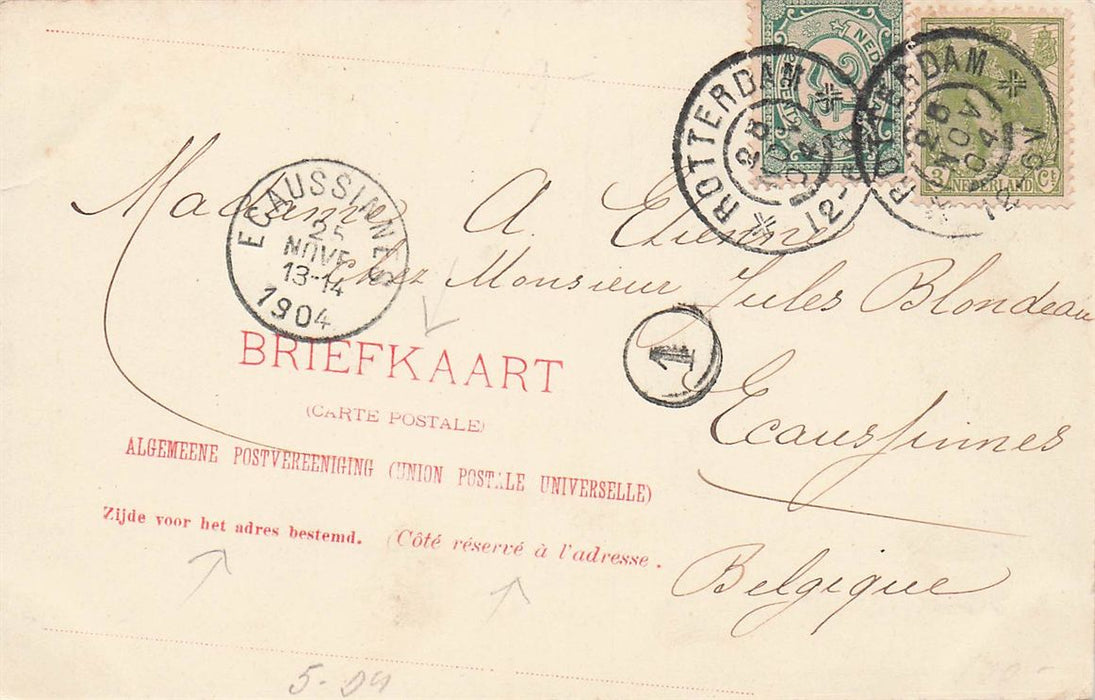 NEDERLAND
2½
3 Ct NEDERLAND
ROTTERDAM
25 NOV 04
12-
ROTTERDAM
25 NOV 04
12-6V
ECAUSSINNES
25
NOVE
13-14
1904
Madame A. Etienne
chez Monsieur Jules Blondeau
1
Ecaussinnes
Belgique
BRIEFKAART
(CARTE POSTALE)
ALGEMEENE POSTVEREENIGING (UNION POSTALE UNIVERSELLE)
Zijde voor het adres bestemd. (Côté réservé à l'adresse.